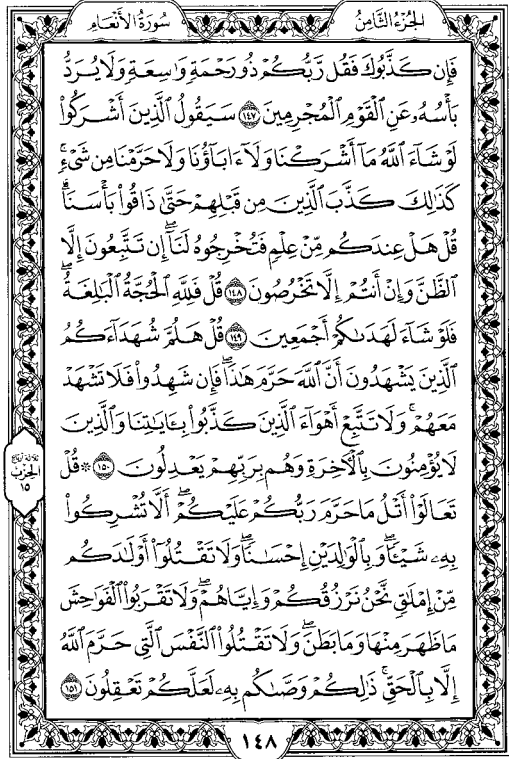 الجزء الثامن
سورة الأنعام
فَإِن كَذَّبُوكَ فَقُل رَّبُّكُمْ ذُو رَحْمَةٍ وَاسِعَةٍ وَلَا يُرَدُّ
بَأْسُهُۥ عَنِ ٱلْقَوْمِ ٱلْمُجْرِمِينَ ١٤٧ سَيَقُولُ ٱلَّذِينَ أَشْرَكُوا۟
لَوْ شَآءَ ٱللَّهُ مَآ أَشْرَكْنَا وَلَآ ءَابَآؤُنَا وَلَا حَرَّمْنَا مِن شَىْءٍۚ
كَذَٰلِكَ كَذَّبَ ٱلَّذِينَ مِن قَبْلِهِمْ حَتَّىٰ ذَاقُوا۟ بَأْسَنَاۗ
قُلْ هَلْ عِندَكُم مِّنْ عِلْمٍ فَتُخْرِجُوهُ لَنَآۖ إِن تَتَّبِعُونَ إِلَّا
ٱلظَّنَّ وَإِنْ أَنتُمْ إِلَّا تَخْرُصُونَ ١٤٨ قُلْ فَلِلَّهِ ٱلْحُجَّةُ ٱلْبَٰلِغَةُۖ
فَلَوْ شَآءَ لَهَدَىٰكُمْ أَجْمَعِينَ ١٤٩ قُلْ هَلُمَّ شُهَدَآءَكُمُ
ٱلَّذِينَ يَشْهَدُونَ أَنَّ ٱللَّهَ حَرَّمَ هَٰذَاۖ فَإِن شَهِدُوا۟ فَلَا تَشْهَدْ
مَعَهُمْۚ وَلَا تَتَّبِعْ أَهْوَآءَ ٱلَّذِينَ كَذَّبُوا۟ بِـَٔايَٰتِنَا وَٱلَّذِينَ
لَا يُؤْمِنُونَ بِٱلْـَٔاخِرَةِ وَهُم بِرَبِّهِمْ يَعْدِلُونَ ١٥٠ ۞ قُلْ
تَعَالَوْا۟ أَتْلُ مَا حَرَّمَ رَبُّكُمْ عَلَيْكُمْۖ أَلَّا تُشْرِكُوا۟
بِهِۦ شَيْـًٔاۖ وَبِٱلْوَٰلِدَيْنِ إِحْسَٰنًاۖ وَلَا تَقْتُلُوٓا۟ أَوْلَٰدَكُم
مِّنْ إِمْلَٰقٍۖ نَّحْنُ نَرْزُقُكُمْ وَإِيَّاهُمْۖ وَلَا تَقْرَبُوا۟ ٱلْفَوَٰحِشَ
مَا ظَهَرَ مِنْهَا وَمَا بَطَنَۖ وَلَا تَقْتُلُوا۟ ٱلنَّفْسَ ٱلَّتِى حَرَّمَ ٱللَّهُ
إِلَّا بِٱلْحَقِّۚ ذَٰلِكُمْ وَصَّىٰكُم بِهِۦ لَعَلَّكُمْ تَعْقِلُونَ ١٥١
ثلاثة أرباع
الحزب
١٥
١٤٨